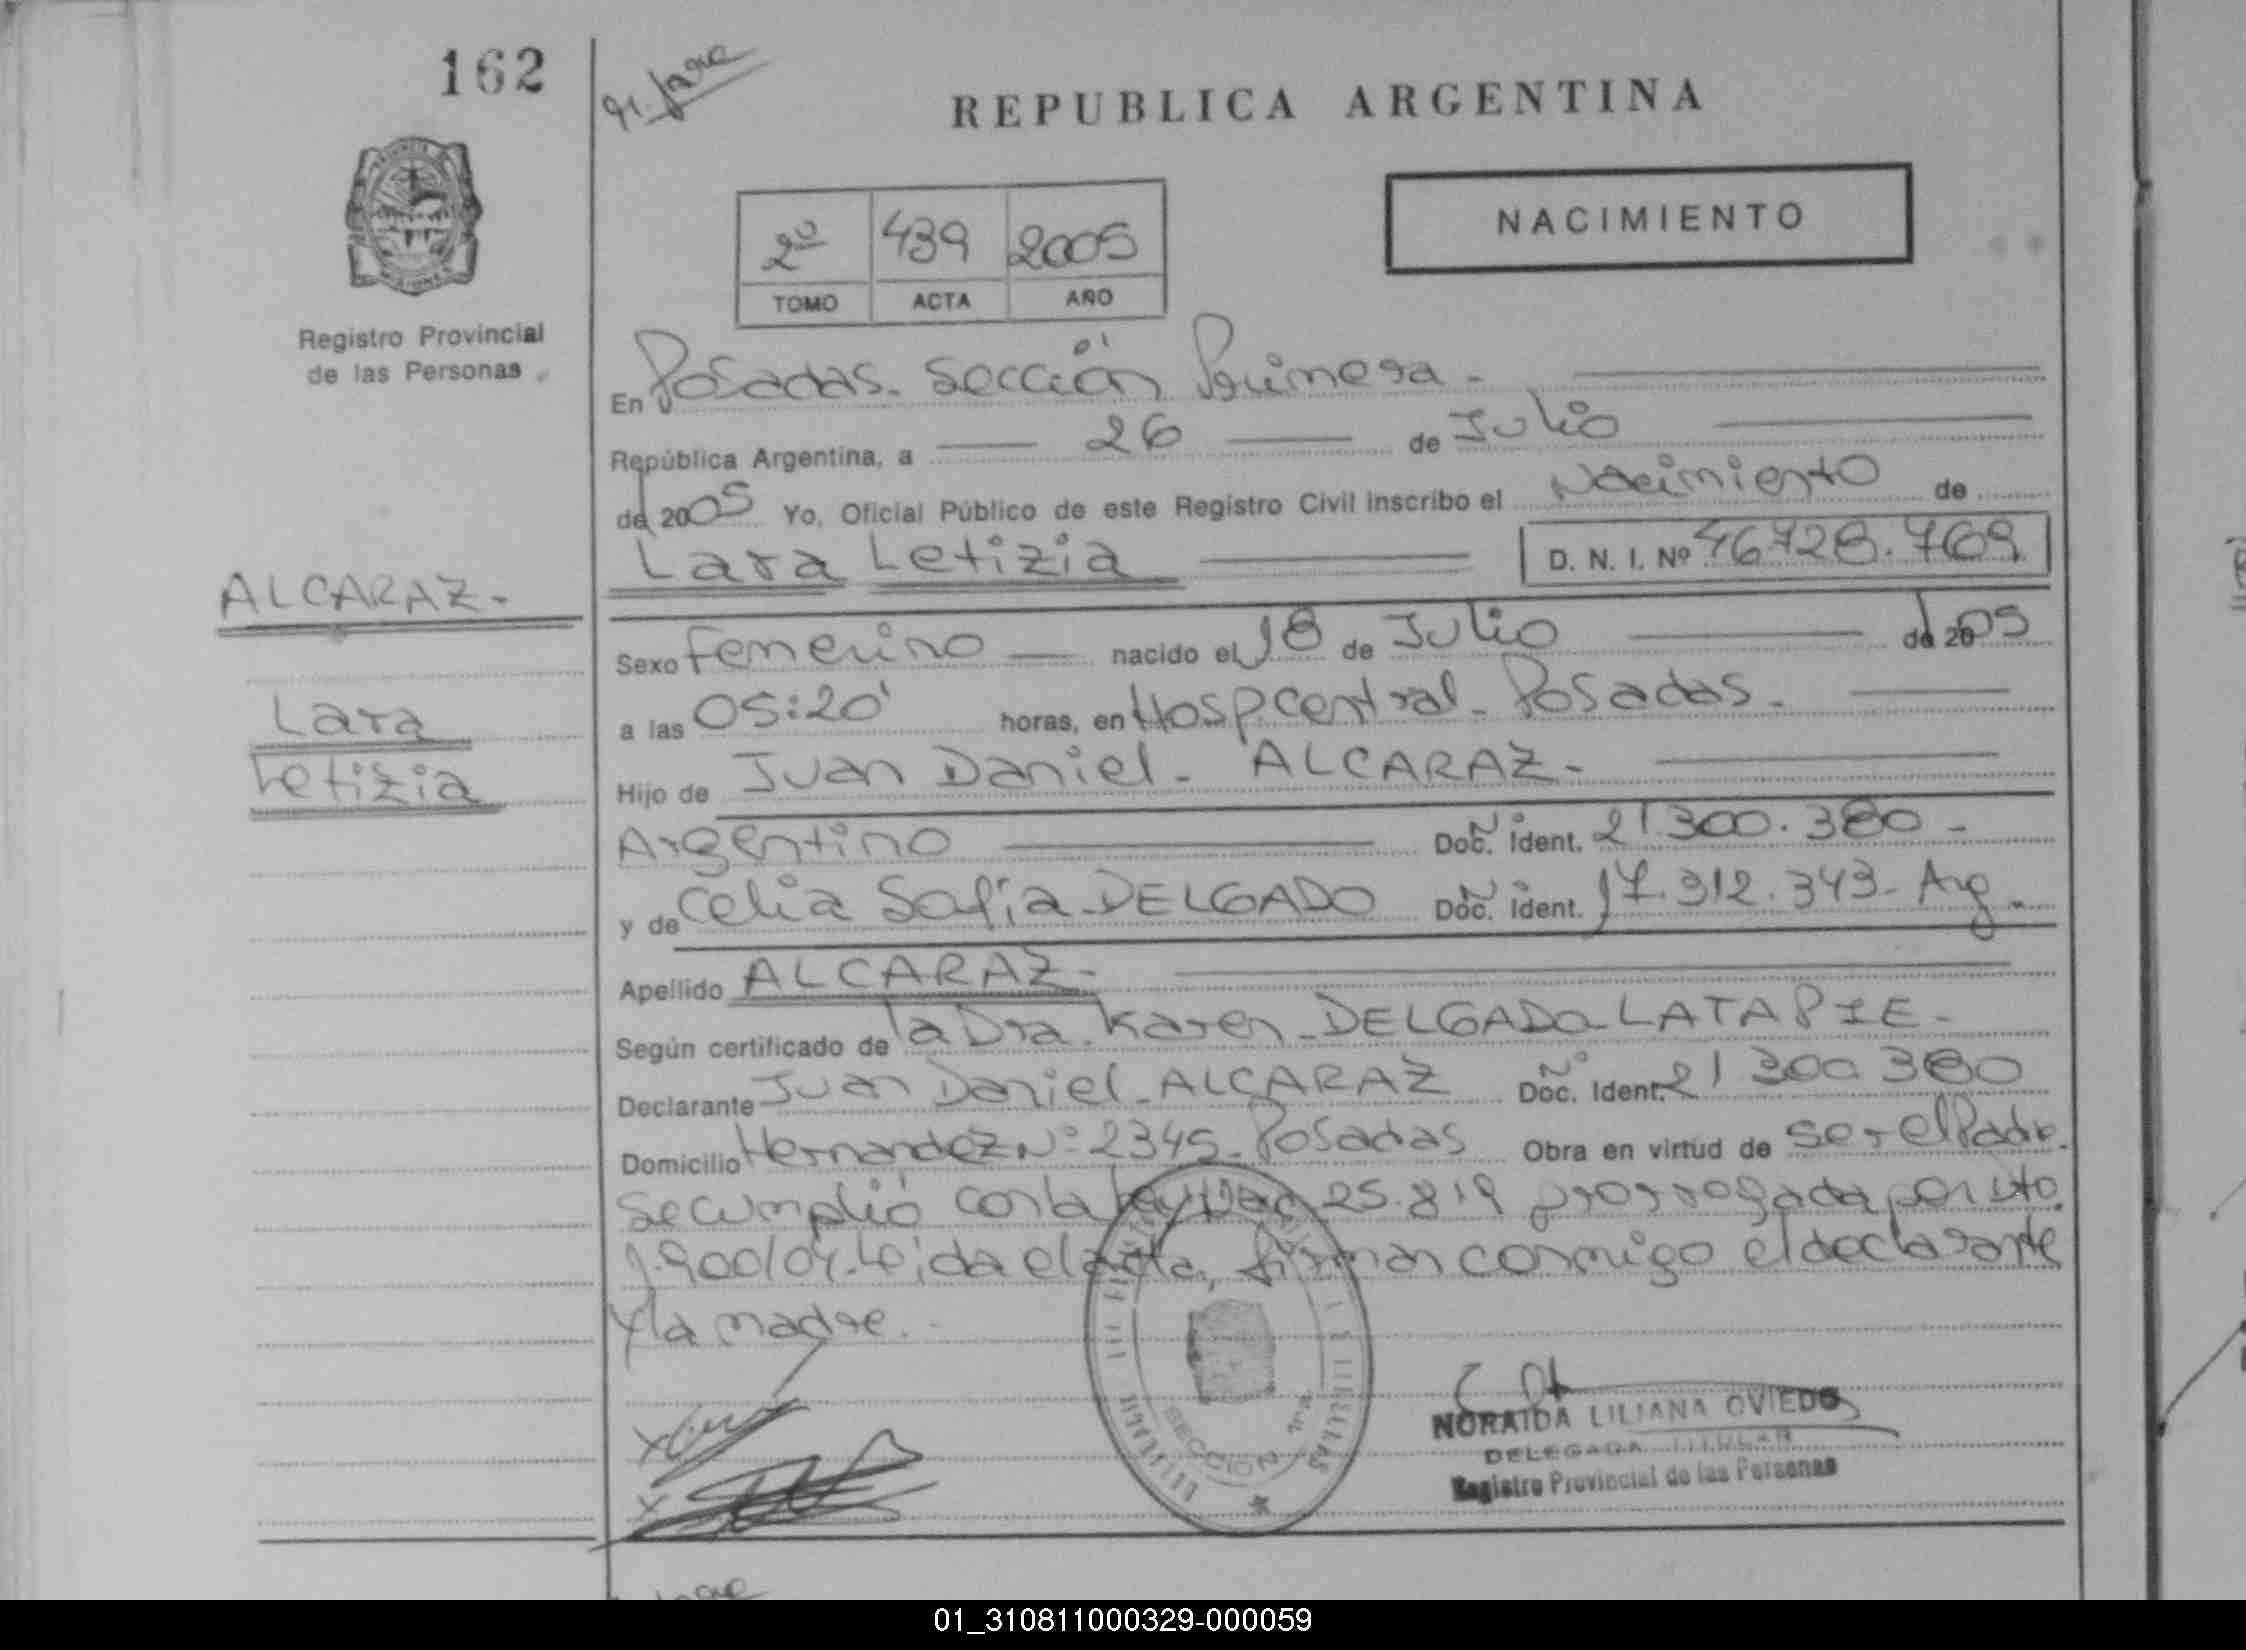 162
REPUBLICA ARGENTINA
NACIMIENTO
2º 439 2005
TOMO ACTA AÑO
Registro Provincial
de las Personas
En Posadas. Sección Primera.
República Argentina, a 26 de Julio
de 2005 Yo, Oficial Público de este Registro Civil inscribo el Nacimiento de
Lara Letizia D. N. I. Nº 46728.769
ALCARAZ.
Sexo femenino nacido el 18 de Julio de 2005
Lara
a las 05:20' horas, en Hosp central. Posadas.
Letizia
Hijo de Juan Daniel. ALCARAZ.
Argentino Doc. Ident. Nº 21.300.380.
y de Celia Sofía. DELGADO Doc. Ident. Nº 17.312.343. Arg.
Apellido ALCARAZ.
Según certificado de la Dra. Karen. DELGADO LATAPIE.
Declarante Juan Daniel. ALCARAZ Doc. Ident. Nº 21 300 380
Domicilio Hernandez Nº 2345. Posadas Obra en virtud de ser el Padre.
Se cumplió con la Ley Nac 25.819 prorrogada por Dto.
1.900/04. Leída el acta, firman conmigo el declarante
y la madre.
SECCION 1ra
NORAIDA LILIANA OVIEDO
DELEGADA TITULAR
Registro Provincial de las Personas
01_310811000329-000059